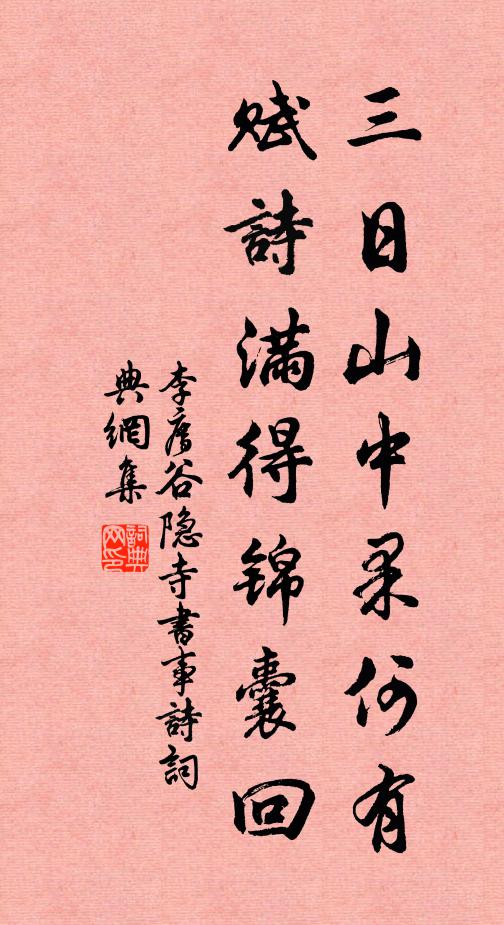 三日山中果何有
賦詩滿得錦囊回
李廌谷隐寺書事詩詞
典網集
詞典
网印